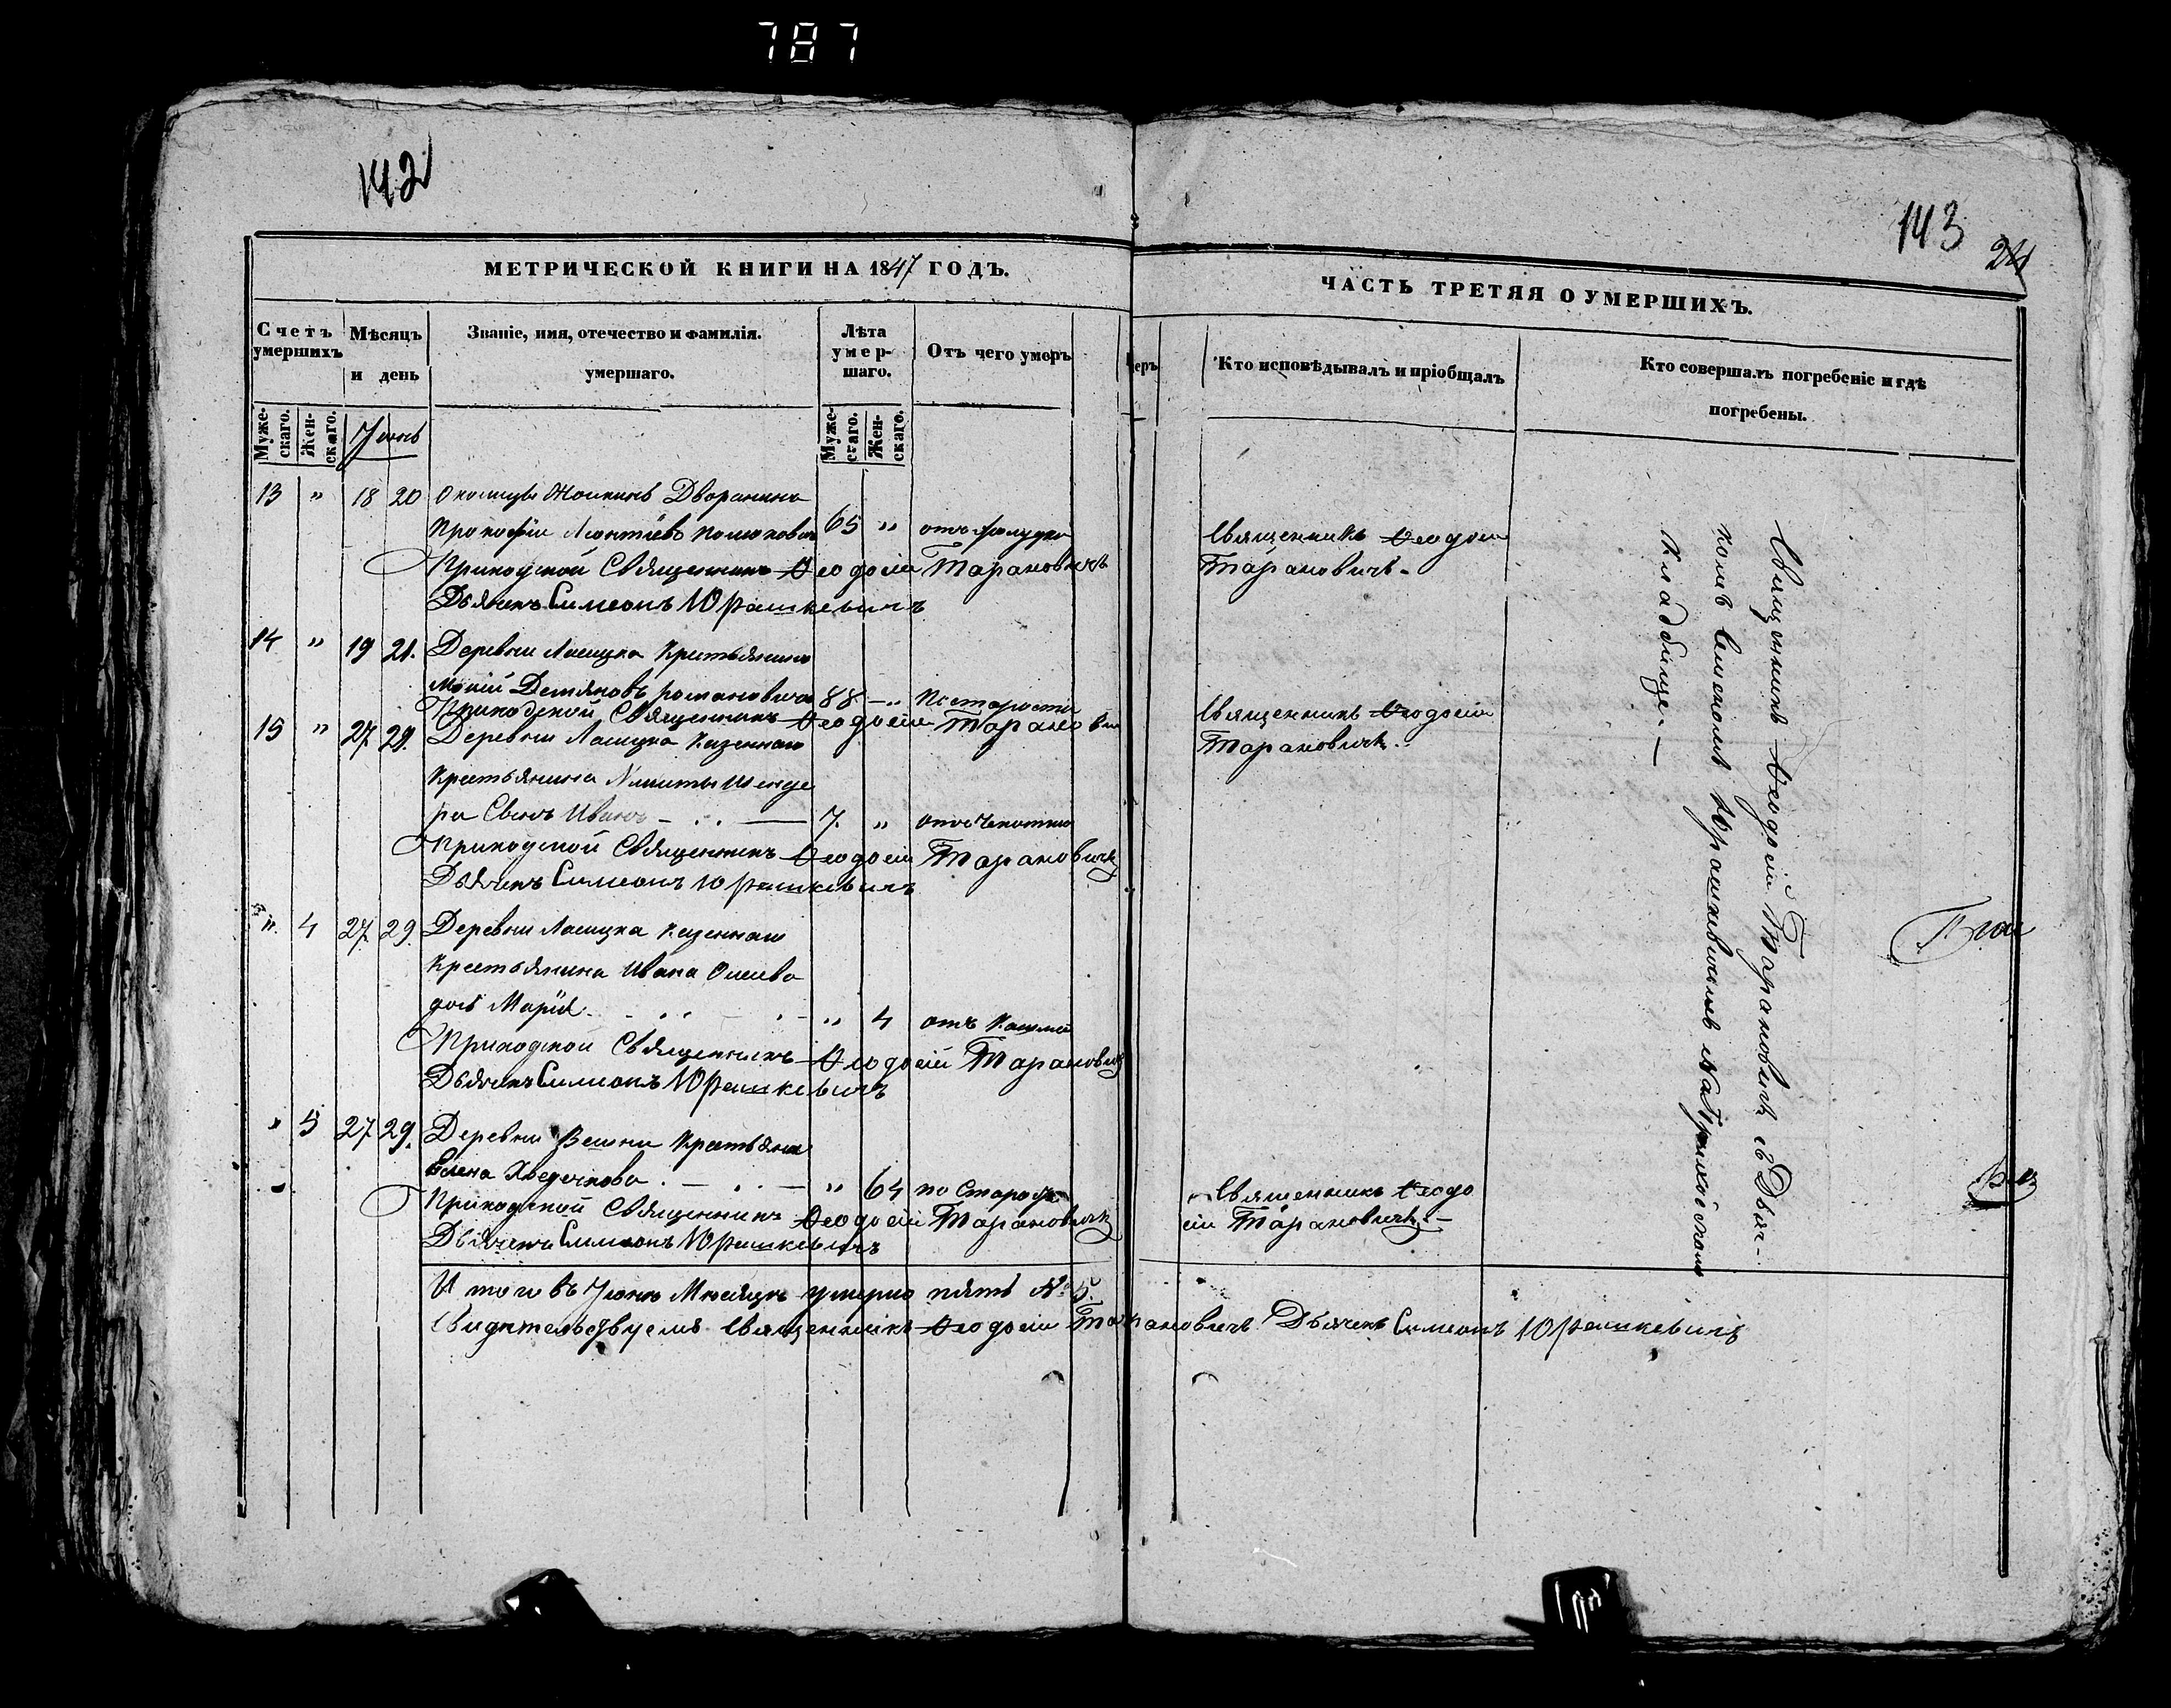 787
142
МЕТРИЧЕСКОЙ КНИГИ НА 1847 ГОДЪ.
Счетъ умершихъ
Мѣсяцъ и день
Званіе, имя, отечество и фамилія.
умершаго.
Лѣта умер-
шаго.
Отъ чего умеръ
Муже-
скаго.
Жен-
скаго.
Іюнь
Муже-
скаго.
Жен-
скаго.
13 " 18 20 Околицы Дворянинъ
Прокофій Леонтіевъ 65 " отъ
Приходской Священникъ Ѳеодосій Тарановичъ
Дьячекъ Симеонъ Юрашкевичъ
14 " 19 21. Деревни Ласицка Крестьянинъ
Демяновъ Романовичъ 88 - " По старости
Приходской Священникъ Ѳеодосій Таранович
15 " 27 29. Деревни Ласицка Казеннаго
Крестьянина Никиты Шенде
ра Сынъ Иванъ - . . — 7. " отъ Чахотки
Приходской Священникъ Ѳеодосій Тарановичъ
Дьячекъ Симеонъ Юрашкевичъ
" 4 27 29. Деревни Ласицка Казеннаго
Крестьянина Ивана
дочь Марія " 4 отъ Кашля
Приходской Священникъ Ѳеодосій Тарановичъ
Дьячекъ Симеонъ Юрашкевичъ
" 5 27 29. Деревни Крестьянка
Елена . — . . — " 64 по Старости
Приходской Священникъ Ѳеодосій Тарановичъ
Дьячекъ Симеонъ Юрашкевичъ
Итого въ Іюнѣ Мѣсяцѣ умерло пять № 5.
Свидѣтельствуемъ Священникъ Ѳеодосій Тарановичъ Дьячекъ Симеонъ Юрашкевичъ
143
24
ЧАСТЬ ТРЕТЯЯ О УМЕРШИХЪ.
Кто исповѣдывалъ и пріобщалъ
Кто совершалъ погребеніе и гдѣ
погребены.
Священникъ Ѳеодосій
Тарановичъ -
Священникъ Ѳеодосій
Тарановичъ.
Священникъ Ѳеодо
сій Тарановичъ. -
Священникъ Ѳеодосій Тарановичъ съ Дьяч-
комъ Симеономъ Юрашкевичемъ на Приходскомъ
Кладбище. —